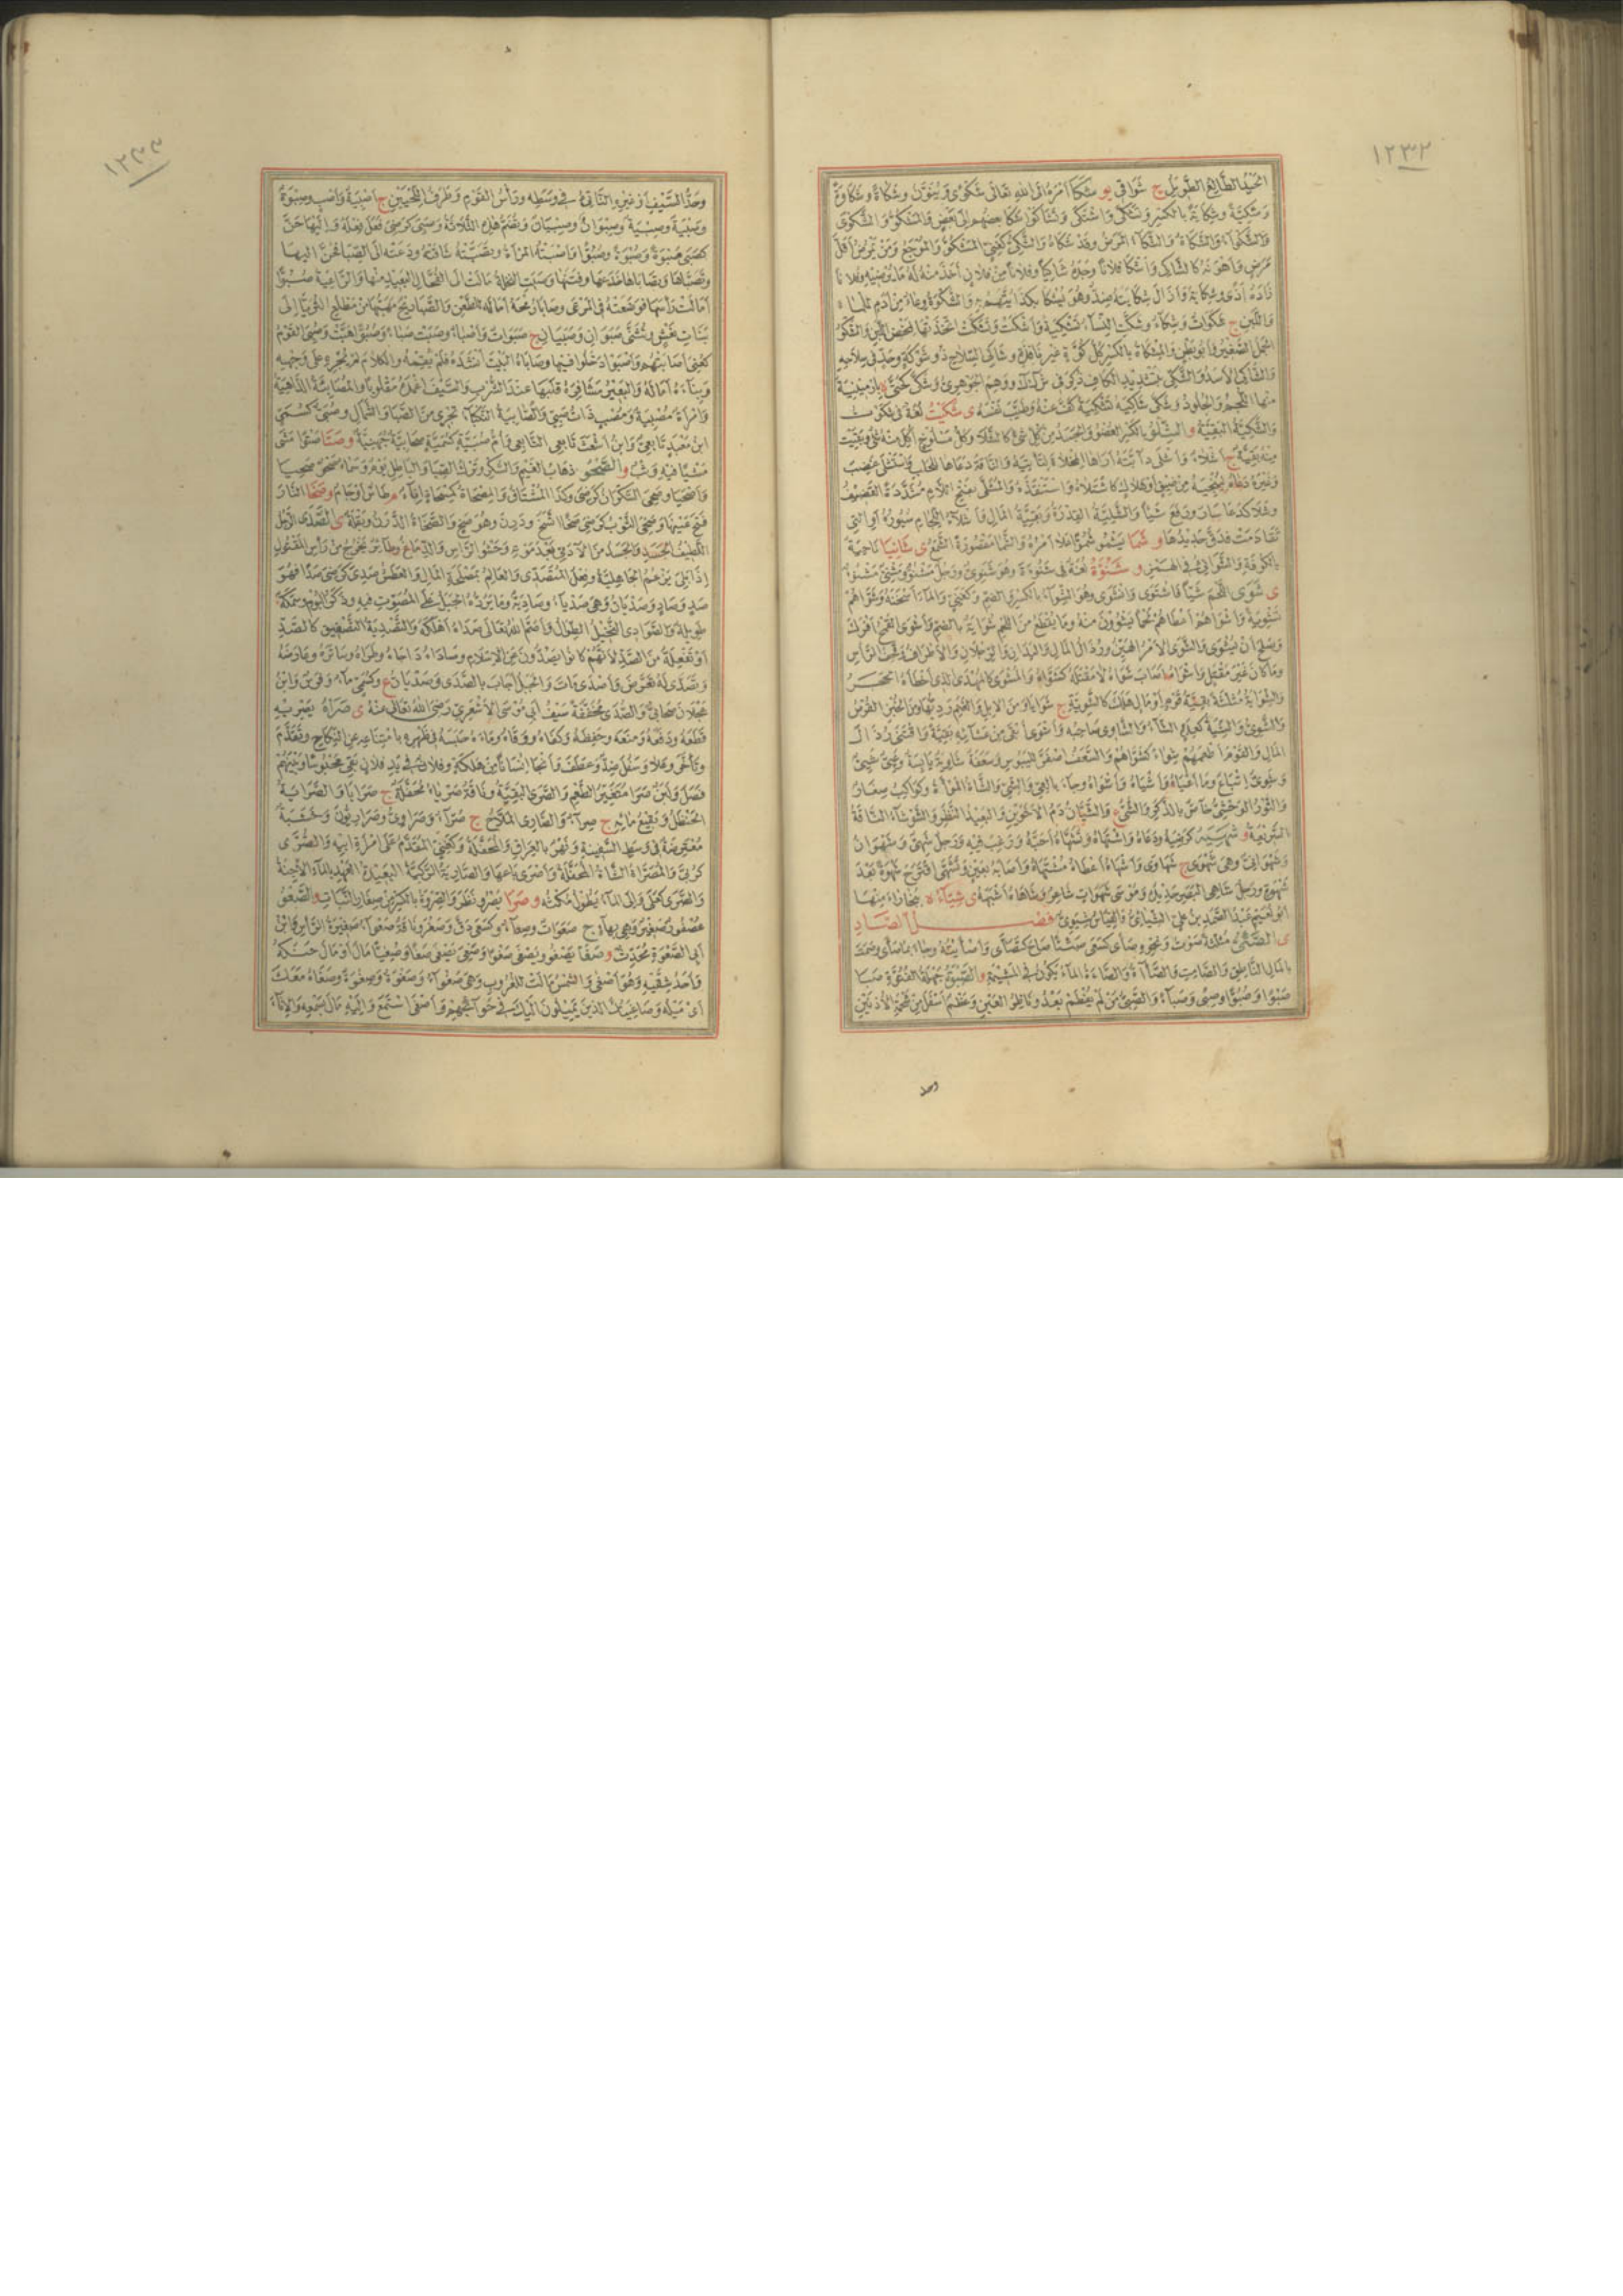 ١٢٣٢
الجيد الطائع الطويل ج شواقي يو شكا أمره إلى الله تعالى شكوى وينون وشكاة وشكاوة
وشكية وشكاية بالكسر وتشكى واشتكى وتشاكوا شكا بعضهم إلى بعض والشكو والشكوى
والشكواء والشكاة والشكاء المرض وقد شكاه والشكي كغني المشكو والموجع ومن يمرض أقل
مرض وأهونه كالشاكي وأشكا فلانا وجده شاكيا وفلانا من فلان أخذ منه له ما يرضيه وفلانا
زاده أذى وشكاية وأزال شكايته ضد وهو يشكا بكذا يتهم به والشكوة وعاء من أدم للماء
واللبن ج شكوات وشكاء وشكت النساء تشكية واشتكت وتشكت اتخذتها لمخض اللبن والشكو
الجمل الصغير وأبو بطن والمشكاة بالكسر كل كوة غير نافذة وشاكي السلاح ذو شوكة وحد في سلاحه
والشاكي الأسد والشكى بتشديد الكاف ذكر في ش ك ك ووهم الجوهري وشكى كحتى ة بأرمينية
منها اللجم والجلود وشكى شاكيه تشكية كف عنه وطيب نفسه ى شكيت لغة في شكوت
والشكية البقية و الشلو بالكسر العضو والجسد من كل شيء كالشلا وكل مسلوخ أكل منه شيء وبقيت
منه بقية ج أشلاء وأشلى دابته أراها المخلاة لتأتيه والناقة دعاها للحلب واشتلى غضب
وغيره دعاه لينجيه من ضيق أو هلاك كاشتلاه واستنقذه والمشلى بفتح اللام مشددة القضيف
وشلا كدعا سار ورفع شيئا والشلية الفدرة وبقية المال وأشلاء اللجام سيوره أو التي
تقادمت فدق حديدها و شما يشمو شموا علا أمره والشما مقصورة الشمع ى شانيا ناحية
بالكوفة والشواني في الهمز و شنوة لغة في شنوءة وهو شنوي ورجل مشنو ومشني مشنوء
ى شوى اللحم شيا فاشتوى وانشوى وهو الشواء بالكسر والضم وكغني والماء أسخنه وشواهم
تشوية وأشواهم أعطاهم لحما يشوون منه وما يقطع من اللحم شواية بالضم وأشوى القمح أفرك
وصلح أن يشوى والشوى الأمر الهين ورذال المال واليدان والرجلان والأطراف وقحف الرأس
وما كان غير مقتل وأشواه أصاب شواه لا مقتله كشواه والمشوى كالمهدى الذي أخطأه الحجر
والشواية مثلثة بقية قوم أو مال هلك كالشوية ج شوايا ومن الإبل والغنم رديها ومن الخبز القرص
والشوي والشية كعلي الشاء والشاوي صاحبه وأشوى أبقى من عشائه بقية واقتنى رذال
المال والقوم أطعمهم شواء كشواهم والسعف اصفر لليبوس وسعفة شاوية يابسة وعيي شيي
وشوي إتباع وما أعياه وأشياه وأشواه وجاء بالعي والشي والشاة المرأة وكواكب صغار
والثور الوحشي خاص بالذكر والشي ع والشيان دم الأخوين والبعيد النظر والشوشاة الناقة
السريعة و شهيه كرضيه ودعاه واشتهاه وتشهاه أحبه ورغب فيه ورجل شهي وشهوان
وشهواني وهي شهوى ج شهاوى وأشهاه أعطاه مشتهاه وأصابه بعين وتشهى اقترح شهوة بعد
شهوة ورجل شاهي البصر حديده وموسى شهوات شاعر وشاهاه أشبهه ى شياء ة ببخاراء منها
أبو نعيم عبد الصمد بن علي الشيائي فصل الصاد
ى الصئي مثلثة صوت ونحوه صأى كسعى صئيا صاح كتصاءى وأصأيته وجاء بما صأى وصمت
بالمال الناطق والصامت والصآة والصاءة الماء يكون في المشيمة و الصبوة جهلة الفتوة صبا
صبوا وصبوا وصبى وصباء والصبي من لم يفطم بعد وناظر العين وعظم أسفل من شحمة الأذنين
وحد
١٢٣٣
وحد السيف أو غيره الناتئ في وسطه ورأس القوم وطرف اللحيين ج أصبية وأصب وصبوة
وصبية وصبية وصبوان وصبيان وتضم هذه الثلاثة وصبي كرضي فعل فعله وإليها حن
كصبى صبوة وصبوة وصبوا وأصبته المرأة وتصبته شاقته ودعته إلى الصبا فحن إليها
وتصباها وتصاباها خدعها وفتنها وصبت النخلة مالت إلى الفحال البعيد منها والراعية صبوا
أمالت رأسها فوضعته في المرعى وصابى رمحه أماله للطعن والصبا ريح مهبها من مطلع الثريا إلى
بنات نعش وتثنى صبوان وصبيان ج صبوات وأصباء وصبت صباء وصبوا هبت وصبي القوم
كعني أصابتهم وأصبوا دخلوا فيها وصابى البيت أنشده فلم يقمه والكلام لم يجره على وجهه
وبناءه أماله والبعير مشافره قلبها عند الشرب والسيف أغمده مقلوبا والمصابية الداهية
وامرأة مصبية ومصب ذات صبي والصابية النكباء تجري من الصبا والشمال وصبي كسمي
ابن معبد تابعي وابن أشعث تابعي التابعي وأم صبية كسمية صحابية جهنية و صتا صتوا مشى
مشيا فيه وثب و الصحو ذهاب الغيم والسكر وترك الصبا والباطل يوم وسماء صحو صحيا
وأصحيا وصحي السكران كرضي وكذا المشتاق والمصحاة كمسحاة إناء م طاس أو جام و صخا النار
فتح عينها وصخي الثوب كرضي صخا اتسخ ودرن وهو صخ والصخاة الدرن وبقلة ى الصدى الرجل
اللطيف الجسد والجسد من الآدمي بعد موته وحشو الرأس والدماغ وطائر يخرج من رأس المقتول
إذا بلي بزعم الجاهلية وفعل المتصدي والعالم بمصلحة المال والعطش صدي كرضي صدا فهو
صد وصاد وصديان وهي صدياء وصادية وما يرده الجبل على المصوت فيه وذكر البوم وسمكة
طويلة والصوادي النخيل الطوال وأصم الله تعالى صداه أهلكه والتصدية التصفيق كالصد
أو تفعلة من الصد لأنهم كانوا يصدون عن الإسلام وصاداه داجاه وداراه وساتره وعارضه
وتصدى له تعرض وأصدى مات والجبل أجاب بالصدى وصديان ع وكسمي ماء وفرس وابن
عجلان صحابي والصدى محققة سيف أبي موسى الأشعري رضي الله تعالى عنه ى صراه يصريه
قطعه ودفعه ومنعه وحفظه وكفاه ووقاه وماءه حبسه في ظهره بامتناعه عن النكاح وتقدم
وتأخر وعلا وسفل ضد وعطف وأنجا إنسانا من هلكة وفلان في يد فلان بقي محبوسا وبينهم
فصل ولبن صرا متغير الطعم والصرى البقية وناقة صرياء محفلة ج صرايا والصراية
الحنظل ونقيع مائه ج صراء والصاري الملاح ج صراء وصراوي وصراريون وخشبة
معترضة في وسط السفينة ونهر بالعراق والمحفلة وكغني المتقدم على امرأة أبيه والصرى
كربى والمصراة الشاة المحفلة وأصرى باعها والصارية الركية البعيدة العهد بالماء الآجنة
و صرا يصرو نظر والصروة بالكسر من صغار النبات و الصعو
عصفور صغير وهي بهاء ج صعوات وصعاء وكسعى دق وصغر وناقة صعواء صغيرة الرأس وابن
أبي الصعوة محدث و صغا يصغو ويصغى صغوا وصغي يصغى صغا وصغيا مال أو مال حنكه
وأحد شقيه وهو أصغى والشمس مالت للغروب وهي صغواء وصغوه وصغوه وصغاه معك
أي ميله وصاغيتك الذين يميلون إليك في حوائجهم وأصغى استمع وإليه مال بسمعه والإناء